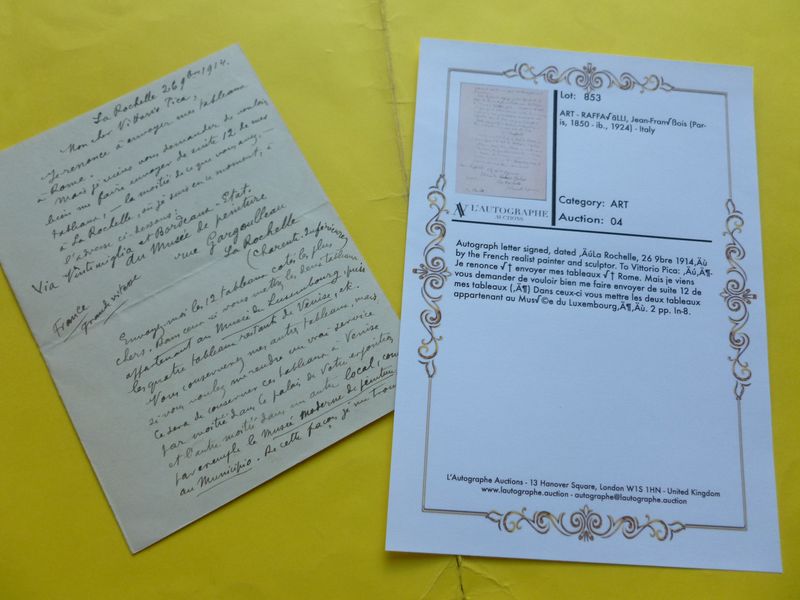 La Rochelle 26 9bre 1914.
Mon cher Vittorio Pica,
Je renonce à envoyer mes tableaux
à Rome.
Mais je viens vous demander de vouloir
bien me faire envoyer de suite 12 de mes
tableaux, — la moitié de ce que vous avez, —
à La Rochelle, où je suis en ce moment, à
l'adresse ci-dessous
Via Vintimiglia et Bordeaux-Etat.
du Musée de peinture
rue Gargoulleau
La Rochelle
(Charente-Inférieure)
France
Grande vitesse
Envoyez moi les 12 tableaux cotés les plus
chers. Dans ceux-ci vous mettez les deux tableaux
appartenant au Musée du Luxembourg, puis
les quatre tableaux restant de Venise, etc.
Vous conserverez mes autres tableaux, mais
si vous voulez me rendre un vrai service
ce sera de conserver ces tableaux à Venise
par moitié dans le palais de votre exposition
et l'autre moitié dans un autre local, comme
par exemple le Musée moderne de peinture
au Municipio. De cette façon je me
Lot: 853
ART - RAFFA√ãLLI, Jean-Fran√ßois (Par-
is, 1850 - ib., 1924) - Italy
Category: ART
Auction: 04
L'AUTOGRAPHE
AUCTIONS
Autograph letter signed, dated ‚ÄúLa Rochelle, 26 9bre 1914‚Äù
by the French realist painter and sculptor. To Vittorio Pica: ‚Äú‚Ķ
Je renonce √† envoyer mes tableaux √† Rome. Mais je viens
vous demander de vouloir bien me faire envoyer de suite 12 de
mes tableaux (‚Ķ) Dans ceux-ci vous mettre les deux tableaux
appartenant au Mus√©e du Luxembourg‚Ķ‚Äù. 2 pp. In-8.
L'Autographe Auctions - 13 Hanover Square, London W1S 1HN - United Kingdom
www.lautographe.auction - autographe@lautographe.auction